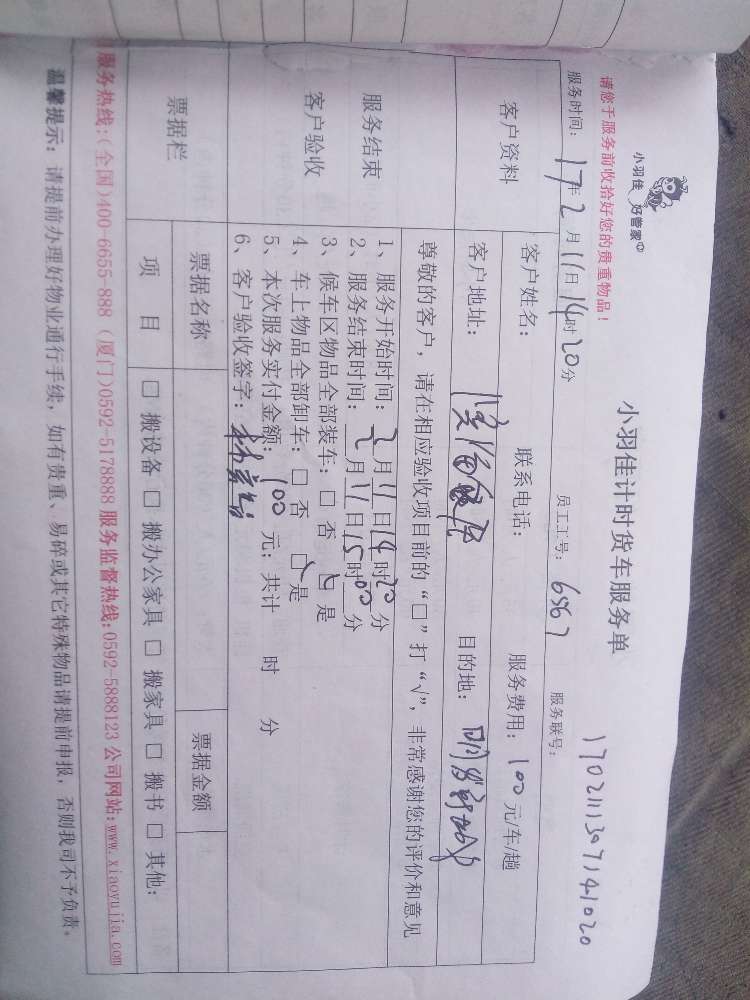 小羽佳 好管家
小羽佳计时货车服务单
17021113071141020
请您于服务前收拾好您的贵重物品！
服务时间：17年2月11日14时20分 员工工号：6567 服务联号：
客户资料
客户姓名： 联系电话： 服务费用：100元/车/趟
客户地址： 目的地：
服务结束
客户验收
尊敬的客户，请在相应验收项目前的“□”打“√”，非常感谢您的评价和意见
1、服务开始时间：2月11日14时20分
2、服务结束时间：2月11日15时00分
3、候车区物品全部装车：□ 否 ☑ 是
4、车上物品全部卸车：□ 否 ☑ 是
5、本次服务实付金额：100元；共计 时 分
6、客户验收签字：
票据栏
票据名称 票据金额
项 目 □ 搬设备 □ 搬办公家具 □ 搬家具 □ 搬书 □ 其他：
服务热线：(全国)400-6655-888 (厦门)0592-5178888 服务监督热线：0592-5888123 公司网站：www.xiaoyujia.com
温馨提示：请提前办理好物业通行手续，如有贵重、易碎或其它特殊物品请提前申报，否则我司不予负责。